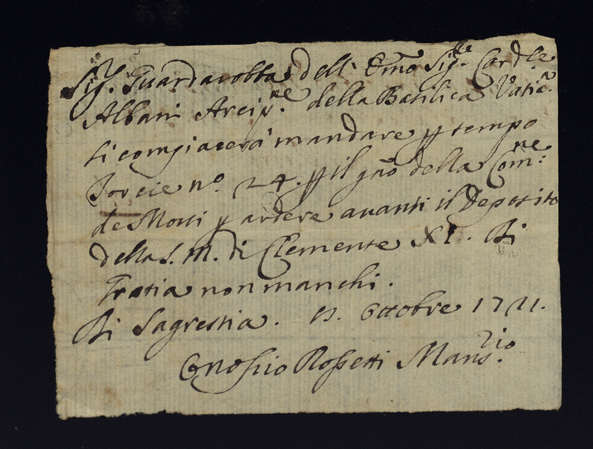 Sig.r Guardarobba dell' Emo Sig.re Cardle
Albani Arcip.re della Basilica Vatic.a
si compiacerà mandare p tempo
Torcie n.o 24. p il gno della Com:ne
de Morti p ardere avanti il Deposito
della S. M. di Clemente XI. Di
Gratia non manchi.
Di Sagrestia. Ottobre 1721.
Rossetti Mans.rio